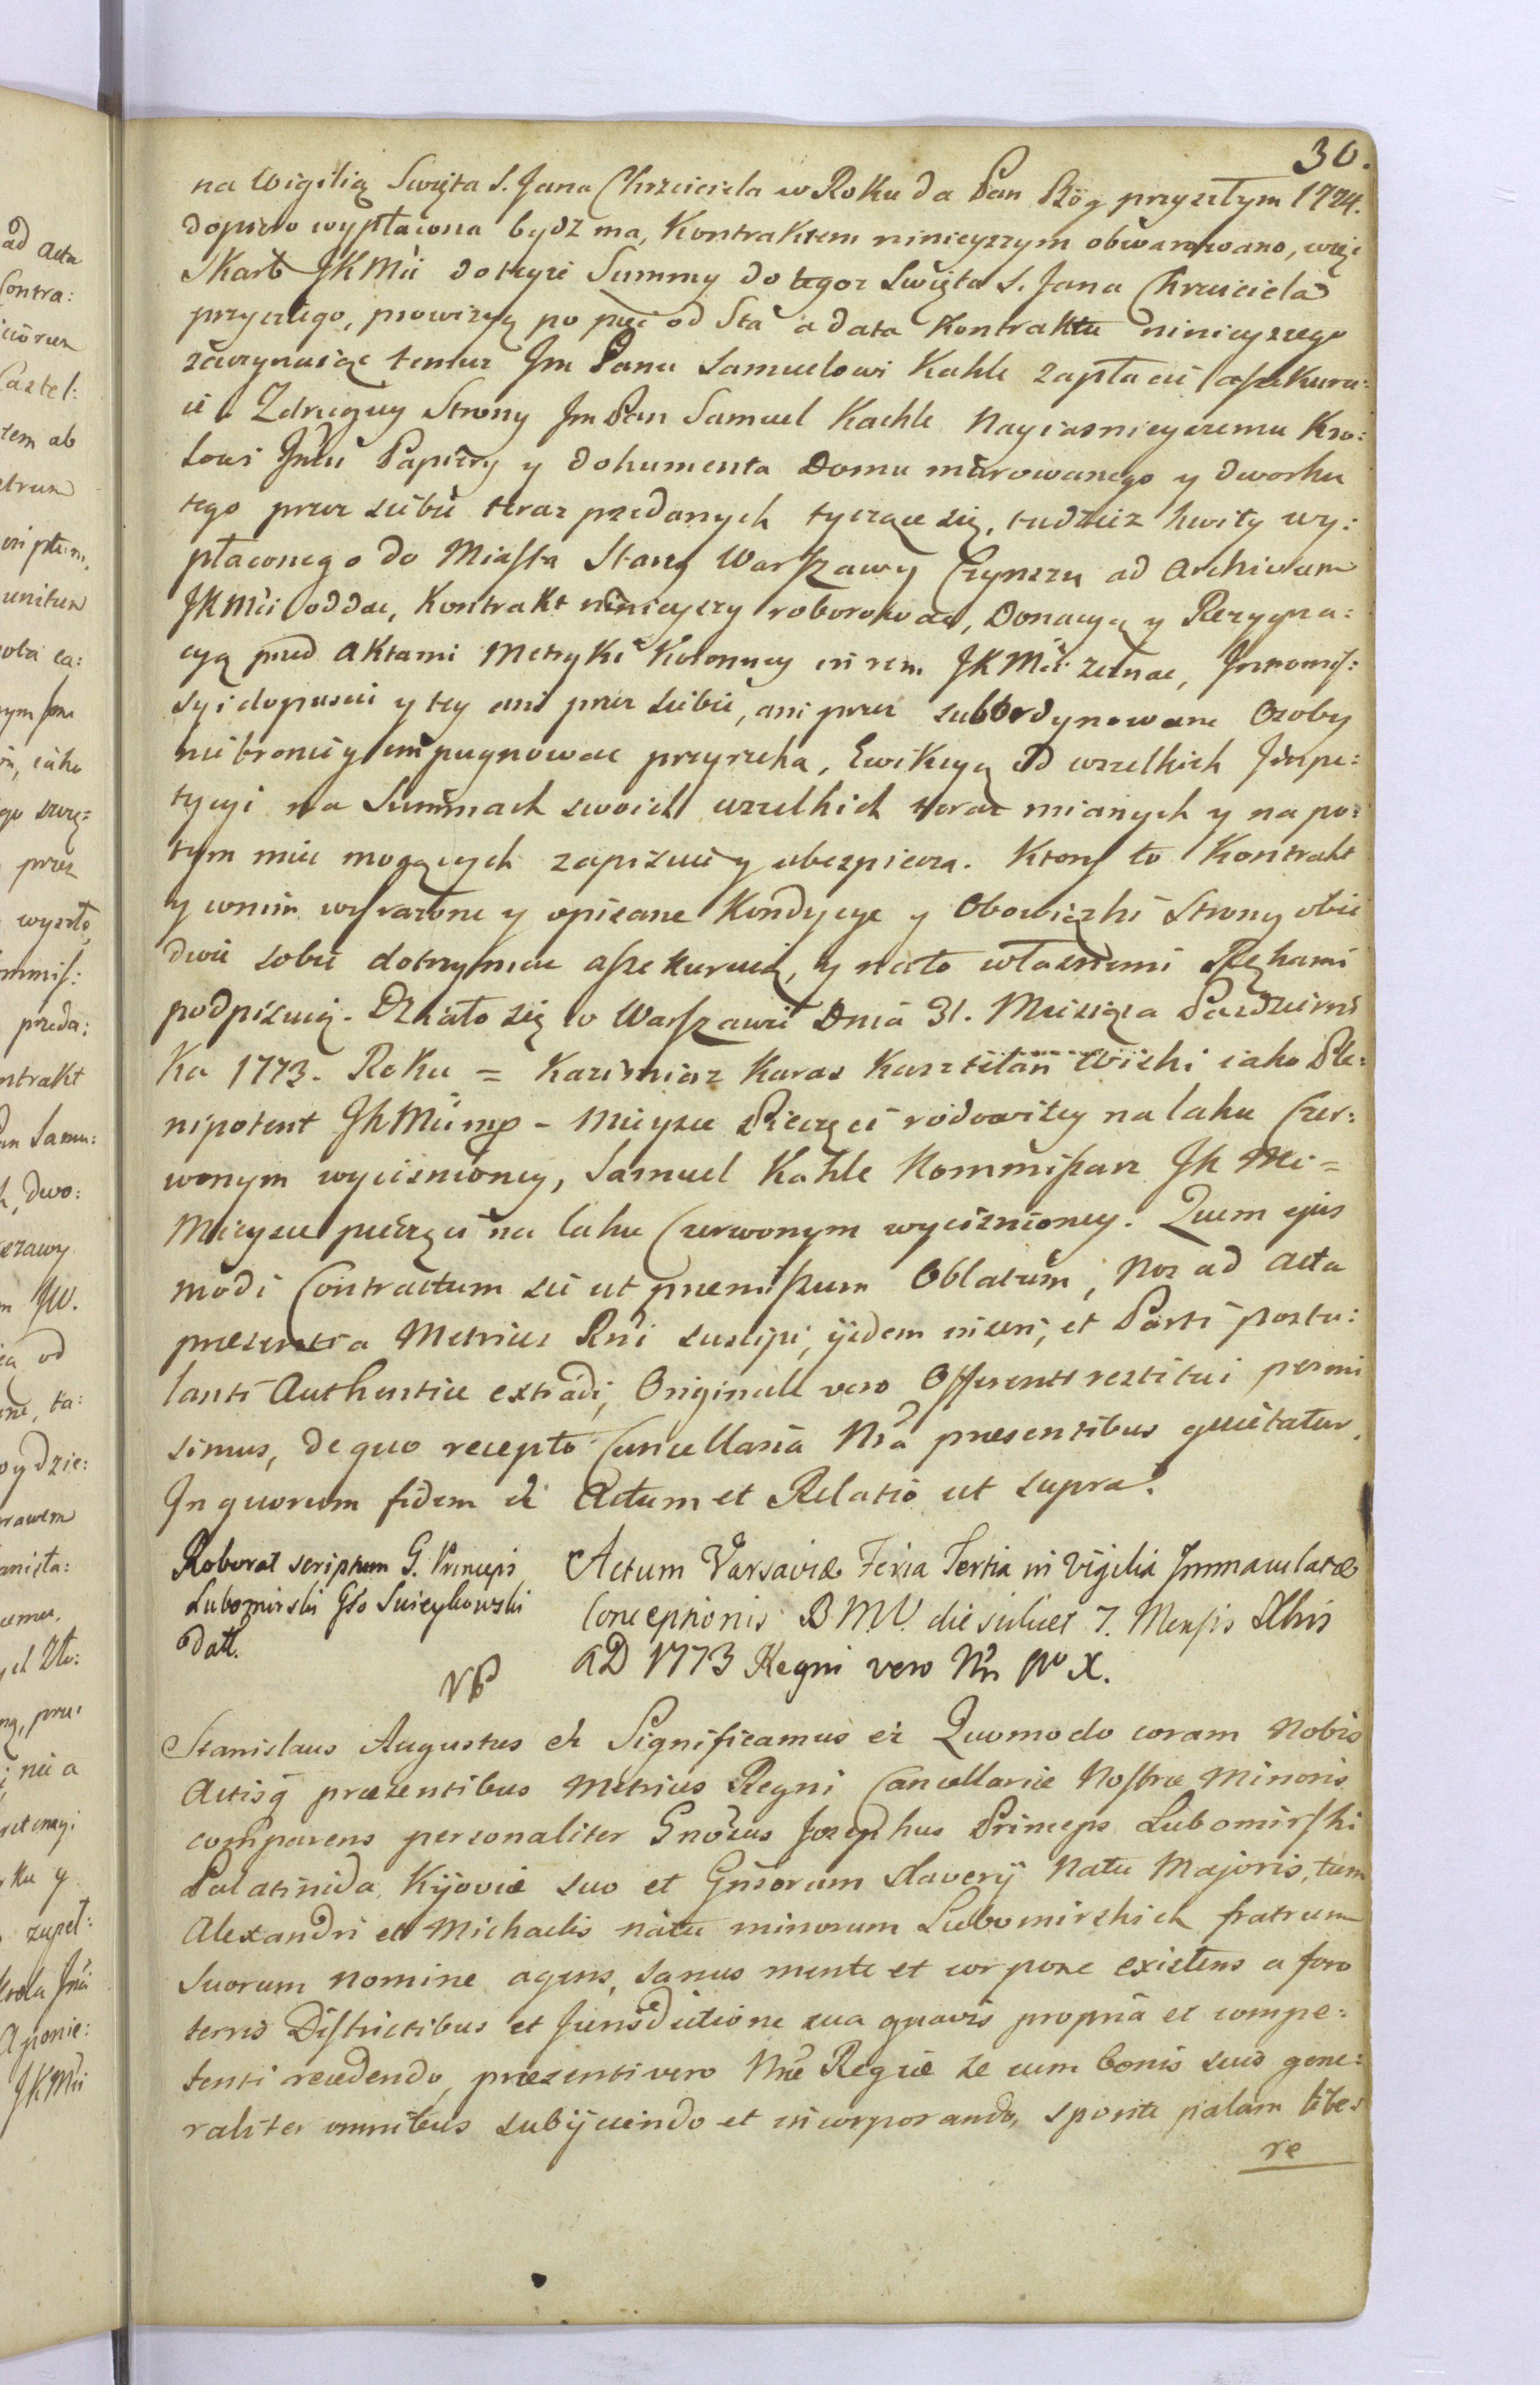 30.
na Wigilią Swięta S. Jana Chrzciciela w Roku da Pan Bóg przyszłym 1774.
dopiero wypłacona bydz ma, Kontraktem ninieyszym obwarowano, więc
Skarb JKMci do teyże Summy do tegoz Swięta S. Jana Chrzciciela
przyszłego, prowizyą po pięć od Sta a data Kontraktu ninieyszego
zaczynaiąc temuz Jm Panu Samuelowi Kahle zapłacić assekuru:
ie. Zdrugiey Strony Jm Pan Samuel Kachle Nayiasnieyszemu Kro:
lowi Jmci Papiery y dokumenta Domu murowanego y dworku
tego przez siebie teraz przedanych tyczące się, tudziez kwity wy:
płaconego do Miasta Starey Warszawy Czynszu ad Archivum
JKMci oddac, Kontrakt ninieyszy roborowac, Donacyą y Rezygna:
cyą przed Aktami Metryki Koronney in rem JKMci zeznac, Intromis:
syi dopuscic y tey ani przez siebie, ani przez subordynowane Osoby
nie bronic y impugnowac przyrzeka, Ewikcyą od wszelkich Impe:
tycyi na Summach swoich wszelkich teraz mianych y na po:
tym miec mogących zapisuie y ubezpiecza. Ktory to Kontrakt
y wnim wyrazone y opisane Kondycye y Obowiązki Strony obie
dwie sobie dotrzymac assekuruią, y nato własnemi Rękami
podpisuią. Działo się w Warszawie Dnia 31. Miesiąca Pazdzierni
ka 1773. Roku = Kazimierz Karas Kasztelan Wiski iako Ple:
nipotent JKMci mp - Mieysce Pieczęci rodowitey na laku Czer:
wonym wycisnioney, Samuel Kahle Kommissarz JK Mci =
Mieysce pieczęci na laku Czerwonym wycisnioney. Quem ejus
modi Contractum sic ut praemissum Oblatum, Nos ad Acta
praesentia Metrices Rni suscipi, ijsdem inseri, et Parti postu:
lanti Authentice extradi, Originale vero Offerenti restitui permi
simus, de quo recepto Cancellaria Nra praesentibus quietatur.
In quorum fidem &c Actum et Relatio ut supra.
Roborat scriptum G. Princeps
Lubomirski Gso Swieykowski
datt.
Actum Varsaviae Feria Tertia in Vigilia Immaculatae
Conceptionis B.M.V. die scilicet 7. Mensis Xbris
AD 1773 Regni vero Nri No X.
Stanislaus Augustus &c Significamus &c Quomodo coram Nobis
Actisq praesentibus Metrices Regni Cancellariae Nostrae Minoris
comparens personaliter Gnosus Josephus Princeps Lubomirski
Palatinida Kijoviae suo et Gnsorum Xaverij Natu Majoris, tum
Alexandri et Michaelis natu minorum Lubomirskich fratrum
Suorum nomine agens, sanus mente et corpore existens a foro
terris Districtibus et Jurisdictione sua quavis propria et compe:
tenti recedendo, praesenti vero Nrae Regiae se cum bonis suis gene:
raliter omnibus subijciendo et incorporando, sponte palam libe:
re